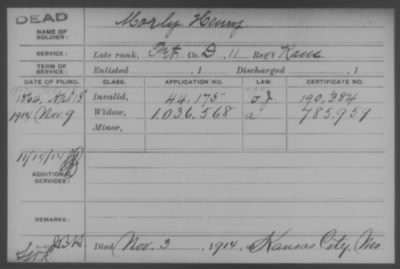 DEAD
NAME OF SOLDIER: Morly Henry
SERVICE: Late rank, Pvt Co. D, 11 Reg't Kans
TERM OF SERVICE: Enlisted , 1 Discharged , 1
DATE OF FILING. CLASS. APPLICATION NO. LAW. CERTIFICATE NO.
1864, Apl 18 Invalid, 44.175 O.L 190.384
1914 Nov. 9 Widow, 1.036.568 a 785.959
Minor,
11/19/14
ADDITIONAL SERVICES:
REMARKS:
Died Nov. 3 1914, Kansas City, Mo